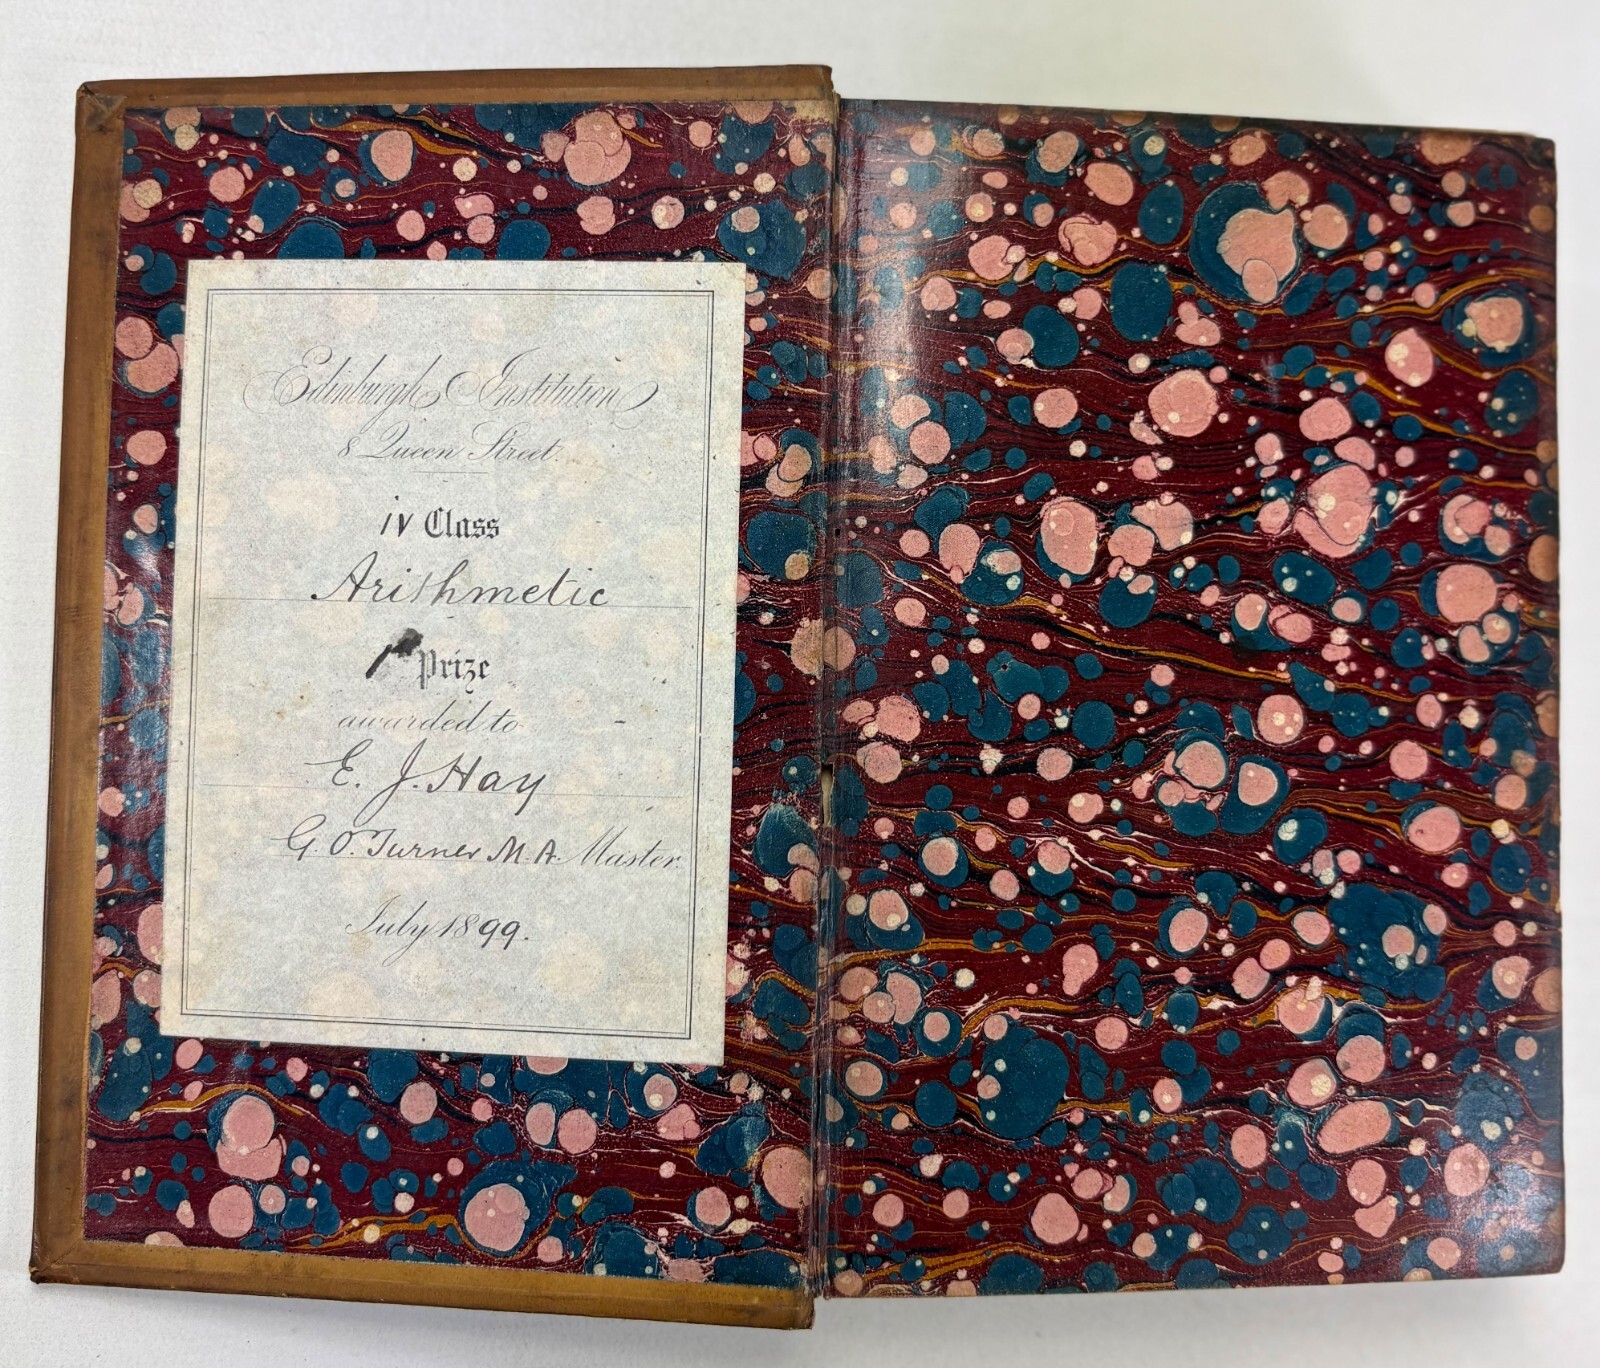 Edinburgh Institution
8 Queen Street.
IV Class
Arithmetic
Prize
awarded to
E. J. Hay
G. O. Turner M.A. Master.
July 1899.